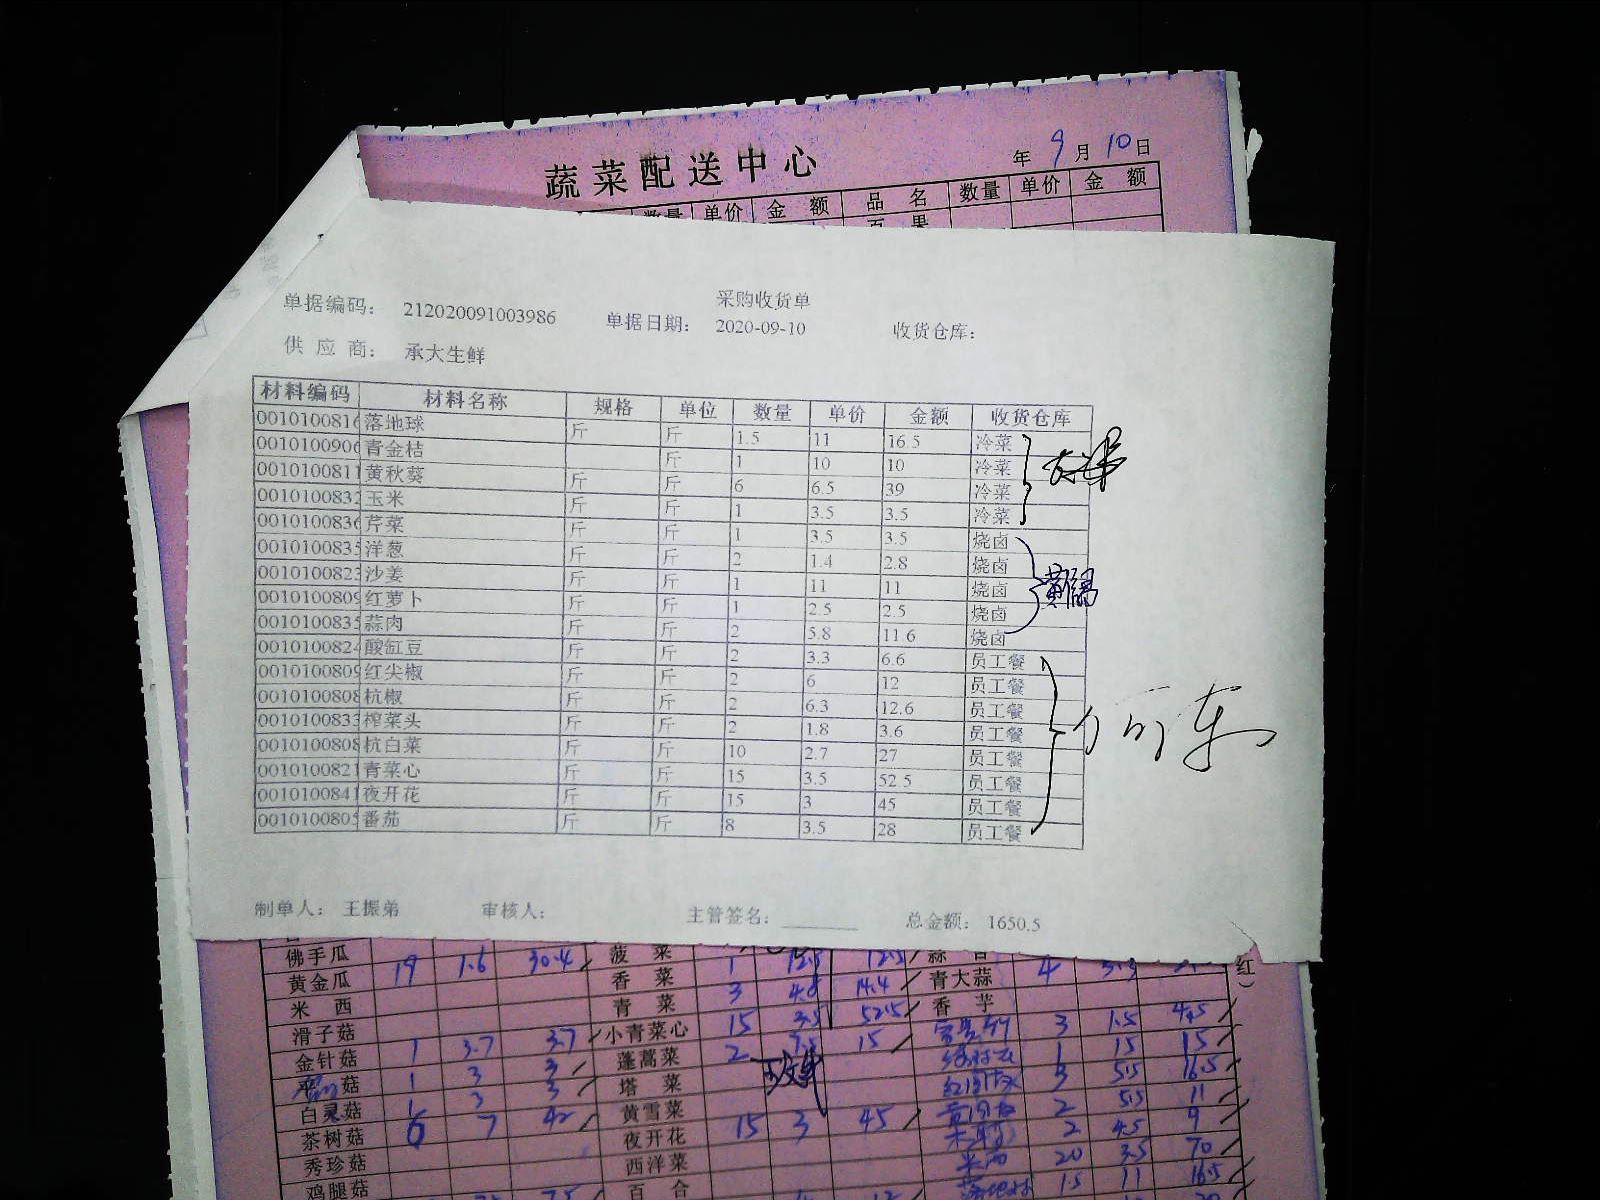 蔬菜配送中心
年 9 月 10 日
数量 单价 金 额 品 名 数量 单价 金 额
百 果
采购收货单
单据编码: 212020091003986 单据日期: 2020-09-10 收货仓库:
供 应 商: 承大生鲜
材料编码 材料名称 规格 单位 数量 单价 金额 收货仓库
0010100816 落地球 斤 斤 1.5 11 16.5 冷菜
0010100906 青金桔 斤 1 10 10 冷菜
0010100811 黄秋葵 斤 斤 6 6.5 39 冷菜
0010100832 玉米 斤 斤 1 3.5 3.5 冷菜
0010100836 芹菜 斤 斤 1 3.5 3.5 烧卤
0010100835 洋葱 斤 斤 2 1.4 2.8 烧卤
0010100823 沙姜 斤 斤 1 11 11 烧卤
0010100809 红萝卜 斤 斤 1 2.5 2.5 烧卤
0010100835 蒜肉 斤 斤 2 5.8 11.6 烧卤
0010100824 酸缸豆 斤 斤 2 3.3 6.6 员工餐
0010100809 红尖椒 斤 斤 2 6 12 员工餐
0010100808 杭椒 斤 斤 2 6.3 12.6 员工餐
0010100833 榨菜头 斤 斤 2 1.8 3.6 员工餐
0010100808 杭白菜 斤 斤 10 2.7 27 员工餐
0010100821 青菜心 斤 斤 15 3.5 52.5 员工餐
0010100841 夜开花 斤 斤 15 3 45 员工餐
0010100805 番茄 斤 斤 8 3.5 28 员工餐
制单人: 王振弟 审核人: 主管签名: 总金额: 1650.5
佛手瓜 19 1.6 30.4 菠 菜 1 12.5 12.5
黄金瓜 香 菜 3 4.8 14.4 青大蒜 4
米 西 青 菜 15 3.5 52.5 香 芋
滑子菇 1 3.7 3.7 小青菜心 2 7.5 15 3 1.5 4.5
金针菇 1 3 3 蓬蒿菜 1 15 15
菇 1 3 3 塔 菜 3 5.5 16.5
白灵菇 6 7 42 黄雪菜 15 3 45 2 5.5 11
茶树菇 夜开花 2 4.5 9
秀珍菇 西洋菜 20 3.5 70
鸡腿菇 百 合 1.5 11 16.5
红)